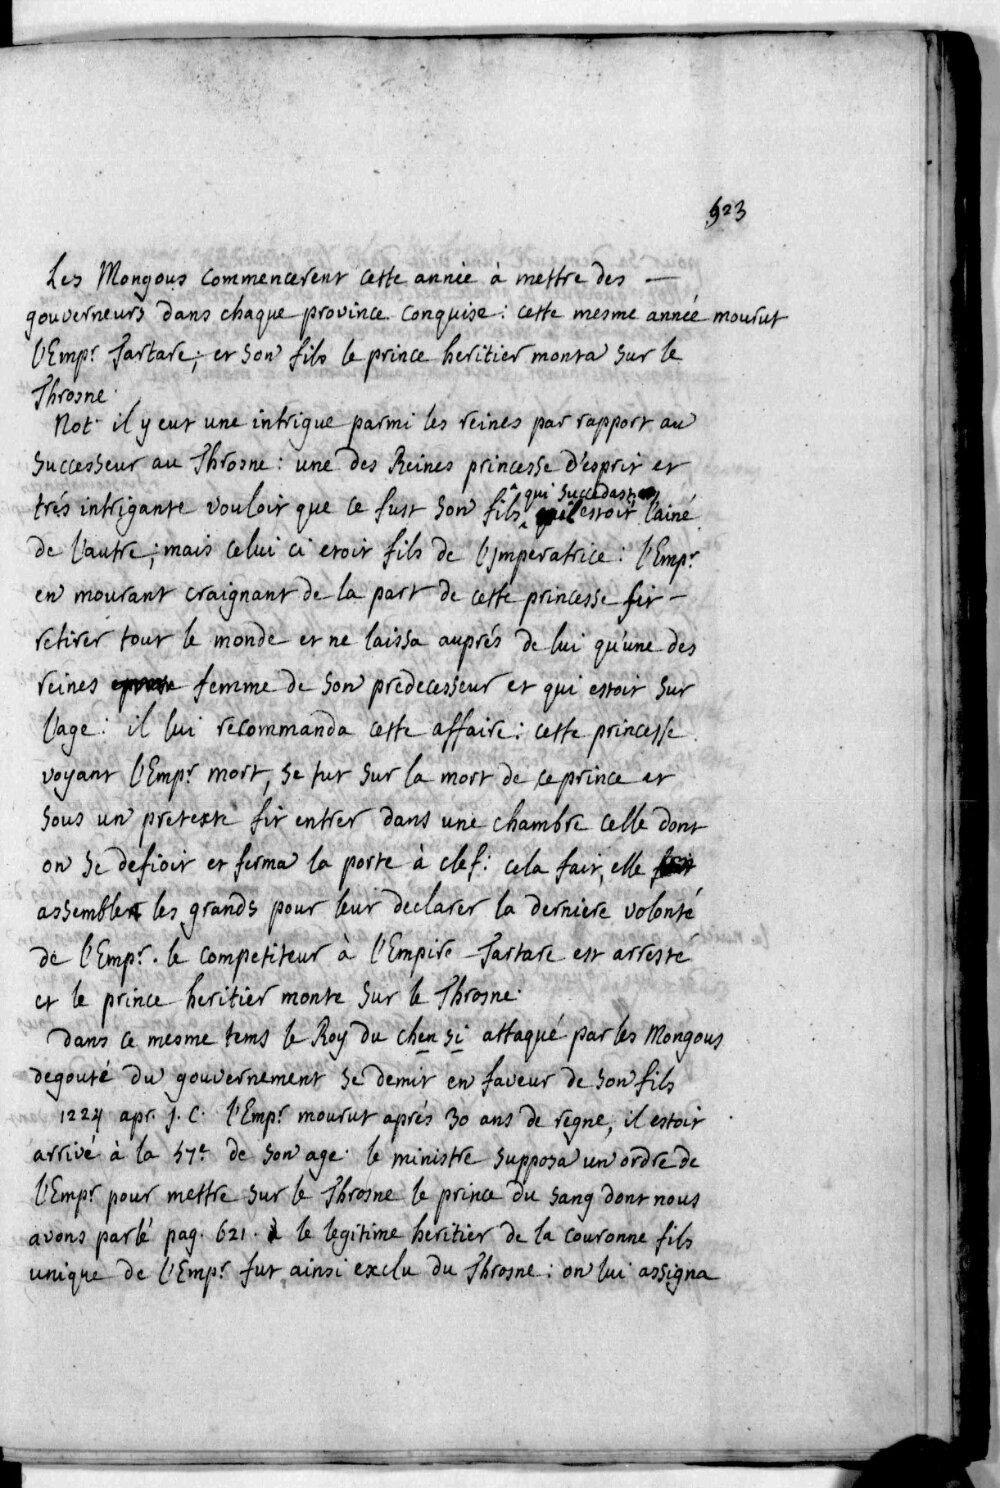 523
Les Mongous commencerent cette année à mettre des —
gouverneurs dans chaque province conquise : cette mesme année mourut
l'Empr. Tartare ; et son fils le prince heritier monta sur le
Throsne.
Not. il y eut une intrigue parmi les reines par rapport au
successeur au Throsne : une des Reines princesse d'esprit et
qui succedast
trés intrigante vouloit que ce fust son fils estoit l'ainé
de l'autre ; mais celui ci etoit fils de l'jmperatrice : l'Empr.
en mourant craignant de la part de cette princesse fit –
retirer tout le monde et ne laissa auprés de lui qu'une des
reines femme de son predecesseur et qui estoit sur
l'age : il lui recommanda cette affaire : cette princesse
voyant l'Empr. mort, se tut sur la mort de ce prince et
sous un pretexte fit entrer dans une chambre celle dont
on se defioit et ferma la porte à clef : cela fait, elle
assembler les grands pour leur declarer la derniere volonté
de l'Empr. le competiteur à l'Empire Tartare est arresté
et le prince heritier monte sur le Throsne.
Dans ce mesme tems le Roy du chen si attaqué par les Mongous
degouté du gouvernement se demit en faveur de son fils
1224 apr. J. C. l'Empr. mourut aprés 30 ans de regne, il estoit
arrivé à la 57e. de son age. le ministre supposa un ordre de
l'Empr. pour mettre sur le Throsne le prince du sang dont nous
avons parlé pag. 621. le legitime heritier de la couronne fils
unique de l'Empr. fut ainsi exclu du Throsne : on lui assigna